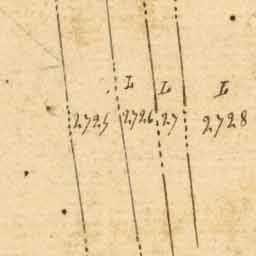 L L L
2725 2726 27 2728